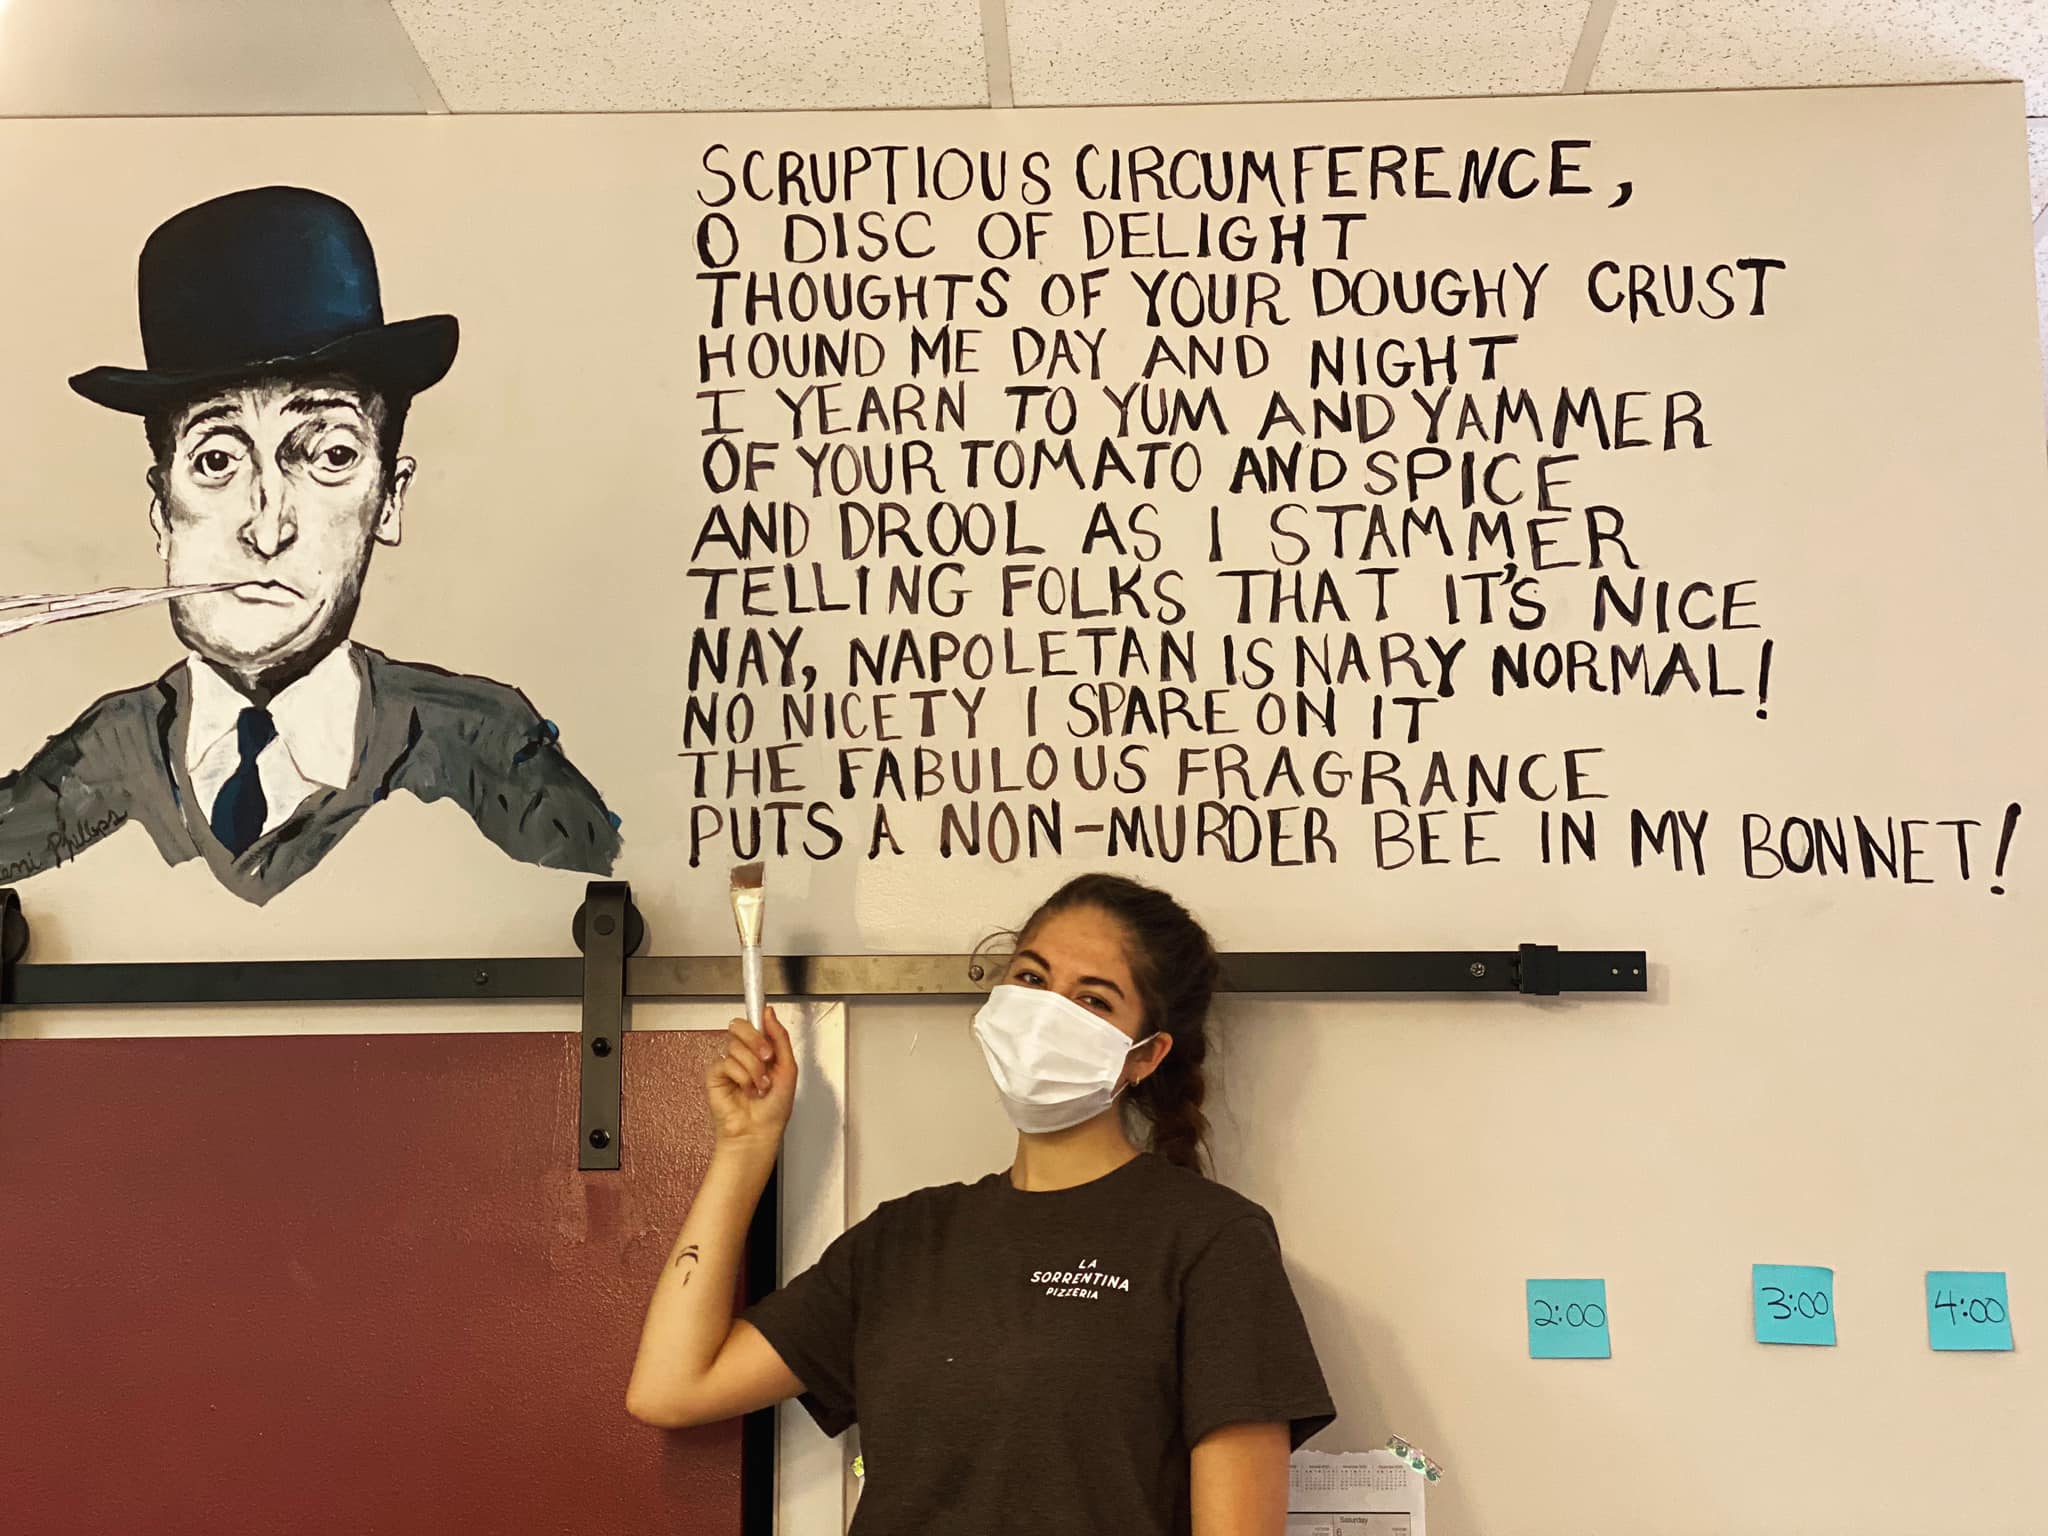 SCRUPTIOUS CIRCUMFERENCE,
O DISC OF DELIGHT
THOUGHTS OF YOUR DOUGHY CRUST
HOUND ME DAY AND NIGHT
I YEARN TO YUM AND YAMMER
OF YOUR TOMATO AND SPICE
AND DROOL AS I STAMMER
TELLING FOLKS THAT IT'S NICE
NAY, NAPOLETAN IS NARY NORMAL!
NO NICETY I SPARE ON IT
THE FABULOUS FRAGRANCE
PUTS A NON-MURDER BEE IN MY BONNET!
Phillips
LA
SORRENTINA
PIZZERIA
2:00
3:00
4:00
Saturday
6